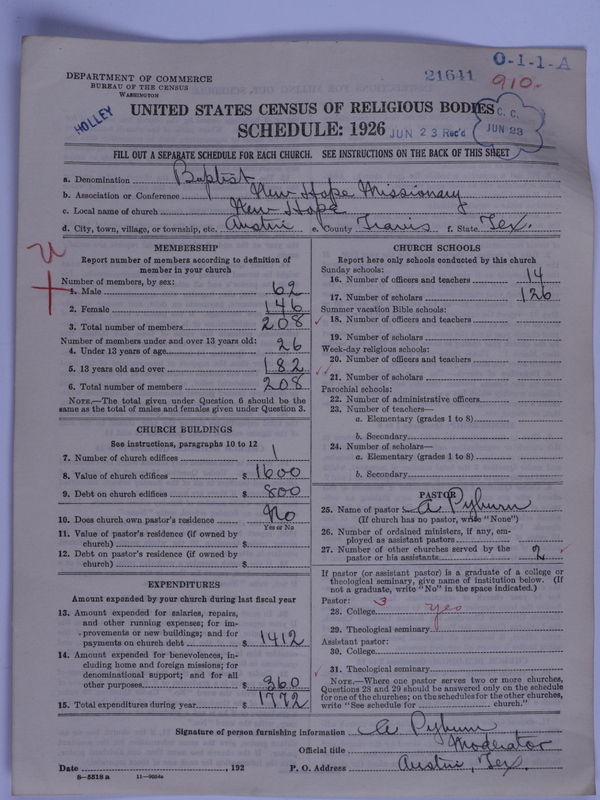 O-1-1-A
21641
910.
DEPARTMENT OF COMMERCE
BUREAU OF THE CENSUS
WASHINGTON
HOLLEY
UNITED STATES CENSUS OF RELIGIOUS BODIES
SCHEDULE: 1926
JUN 23 Rec'd
C. C.
JUN 23
FILL OUT A SEPARATE SCHEDULE FOR EACH CHURCH. SEE INSTRUCTIONS ON THE BACK OF THIS SHEET
a. Denomination Baptist
b. Association or Conference New Hope Missionary
c. Local name of church New Hope
d. City, town, village, or township, etc. Austin e. County Travis f. State Tex.
MEMBERSHIP
Report number of members according to definition of
member in your church
Number of members, by sex:
1. Male 62
2. Female 146
3. Total number of members 208
Number of members under and over 13 years old:
4. Under 13 years of age 26
5. 13 years old and over 182
6. Total number of members 208
NOTE.—The total given under Question 6 should be the
same as the total of males and females given under Question 3.
CHURCH BUILDINGS
See instructions, paragraphs 10 to 12
7. Number of church edifices 1
8. Value of church edifices $ 1600
9. Debt on church edifices $ 800
10. Does church own pastor's residence No
Yes or No
11. Value of pastor's residence (if owned by
church) $
12. Debt on pastor's residence (if owned by
church) $
EXPENDITURES
Amount expended by your church during last fiscal year
13. Amount expended for salaries, repairs,
and other running expenses; for im-
provements or new buildings; and for
payments on church debt $ 1412
14. Amount expended for benevolences, in-
cluding home and foreign missions; for
denominational support; and for all
other purposes $ 360
15. Total expenditures during year $ 1772
CHURCH SCHOOLS
Report here only schools conducted by this church
Sunday schools:
16. Number of officers and teachers 14
17. Number of scholars 126
Summer vacation Bible schools:
18. Number of officers and teachers
19. Number of scholars
Week-day religious schools:
20. Number of officers and teachers
21. Number of scholars
Parochial schools:
22. Number of administrative officers
23. Number of teachers—
a. Elementary (grades 1 to 8)
b. Secondary
24. Number of scholars—
a. Elementary (grades 1 to 8)
b. Secondary
PASTOR
25. Name of pastor A Pyburn
(If church has no pastor, write "None")
26. Number of ordained ministers, if any, em-
ployed as assistant pastors
27. Number of other churches served by the
pastor or his assistants 2
If pastor (or assistant pastor) is a graduate of a college or
theological seminary, give name of institution below. (If
not a graduate, write "No" in the space indicated.)
Pastor: 3
28. College yes
29. Theological seminary
Assistant pastor:
30. College
31. Theological seminary
NOTE.—Where one pastor serves two or more churches,
Questions 28 and 29 should be answered only on the schedule
for one of the churches; on the schedules for the other churches,
write "See schedule for church."
Signature of person furnishing information A Pyburn
Official title Moderator
Date , 192 P. O. Address Austin, Tex.
8-5518 a 11-9054a